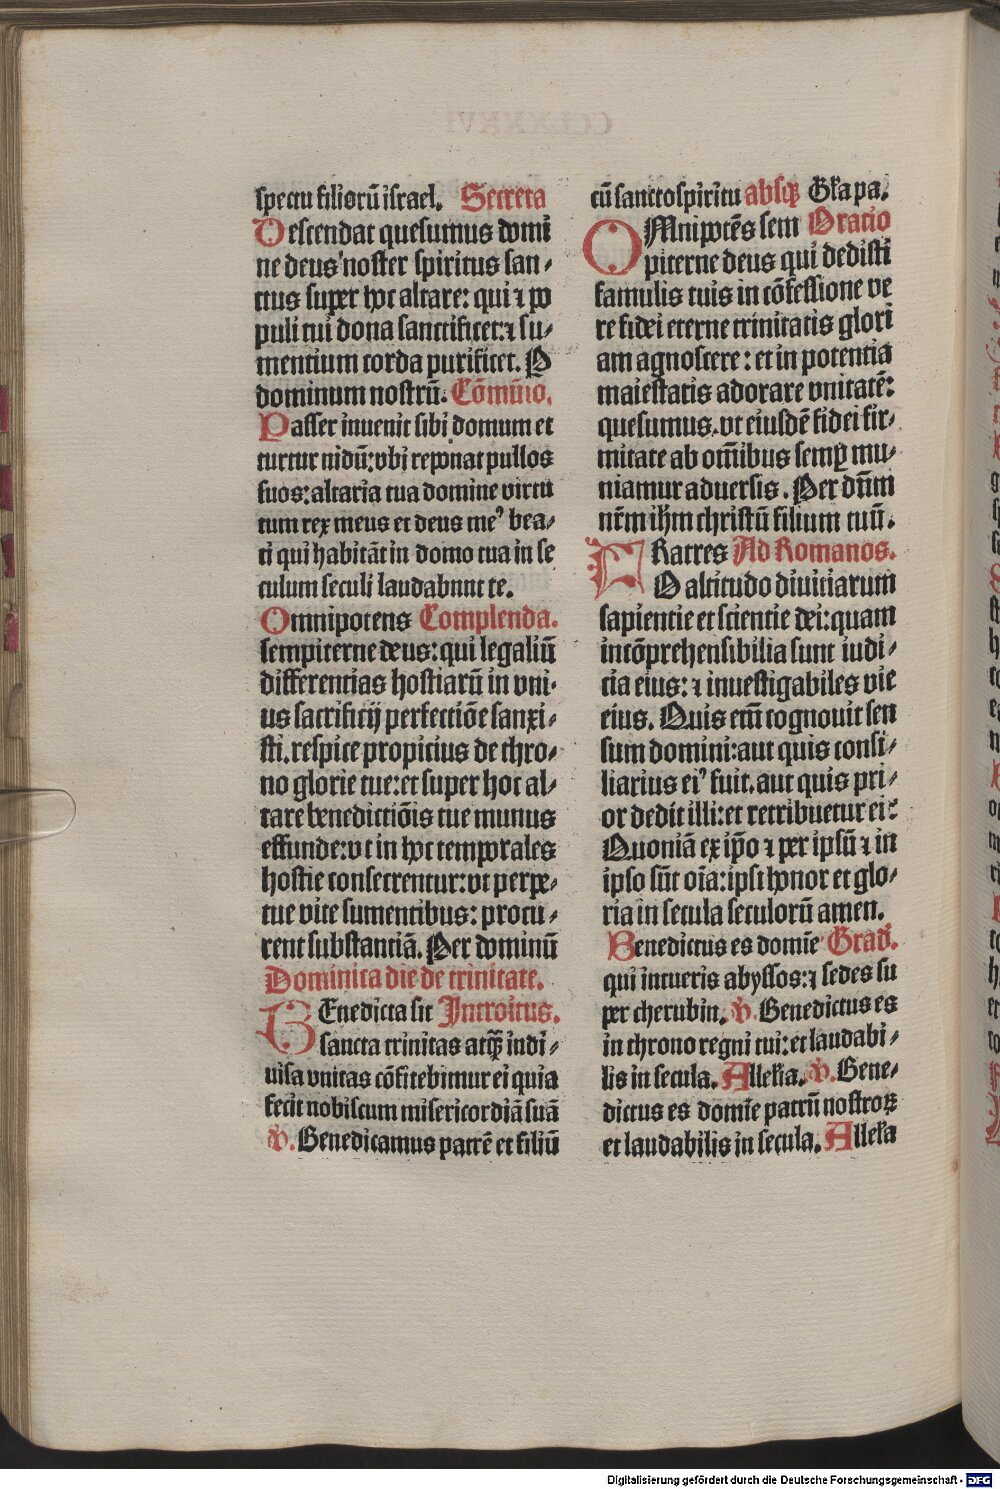 spectu filiorū israel. Secreta
Descendat quesumus domi
ne deus noster spiritus san⸗
ctus super hoc altare: qui ⁊ po
puli tui dona sanctificet:⁊ su⸗
mentium corda purificet. P
dominum nostrū. Cōmūio.
Passer inuenit sibi domum et
turtur nidū:vbi reponat pullos
suos:altaria tua domine virtu
tum rex meus et deus me⁹ bea⸗
ti qui habitāt in domo tua in se
culum seculi laudabunt te.
Omnipotens Complenda.
sempiterne deus:qui legaliū
differentias hostiarū in vni⸗
us sacrificij perfectiōe sanxi⸗
sti.respice propicius de thro⸗
no glorie tue:et super hoc al⸗
tare benedictiōis tue munus
effunde:vt in hoc temporales
hostie consecrentur:vt perpe⸗
tue vite sumentibus: procu⸗
rent substantiā. Per dominū
Dominica die de trinitate.
BEnedicta sit Introitus.
sancta trinitas atqꝫ indi⸗
uisa vnitas cōfitebimur ei quia
fecit nobiscum misericordiā suā
V̄. Benedicamus patrē et filiū
cū sancto spiritu absqꝫ Gl̄a pa.
OMnipotēs sem Oratio
piterne deus qui dedisti
famulis tuis in cōfessione ve
re fidei eterne trinitatis glori
am agnoscere: et in potentia
maiestatis adorare vnitatē:
quesumus.vt eiusdē fidei fir⸗
mitate ab om̄ibus semꝑ mu⸗
niamur aduersis. Per dn̄m
nr̄m ih̄m christū filium tuū.
FRatres Ad Romanos.
O altitudo diuitiarum
sapientie et scientie dei:quam
incōprehensibilia sunt iudi⸗
cia eius:⁊ inuestigabiles vie
eius. Quis em̄ cognouit sen
sum domini:aut quis consi⸗
liarius ei⁹ fuit.aut quis pri⸗
or dedit illi:et retribuetur ei:
Quoniā ex ip̄o ⁊ per ipsū ⁊ in
ipso sūt oīa:ipsi honor et glo⸗
ria in secula seculorū amen.
Benedictus es domīe Grad̄.
qui intueris abyssos:⁊ sedes su
per cherubin. V̄. Benedictus es
in throno regni tui:et laudabi⸗
lis in secula. Allel̄ia. V̄. Bene⸗
dictus es domīe patrū nostroꝝ
et laudabilis in secula. Allel̄a
Digitalisierung gefördert durch die Deutsche Forschungsgemeinschaft - DFG